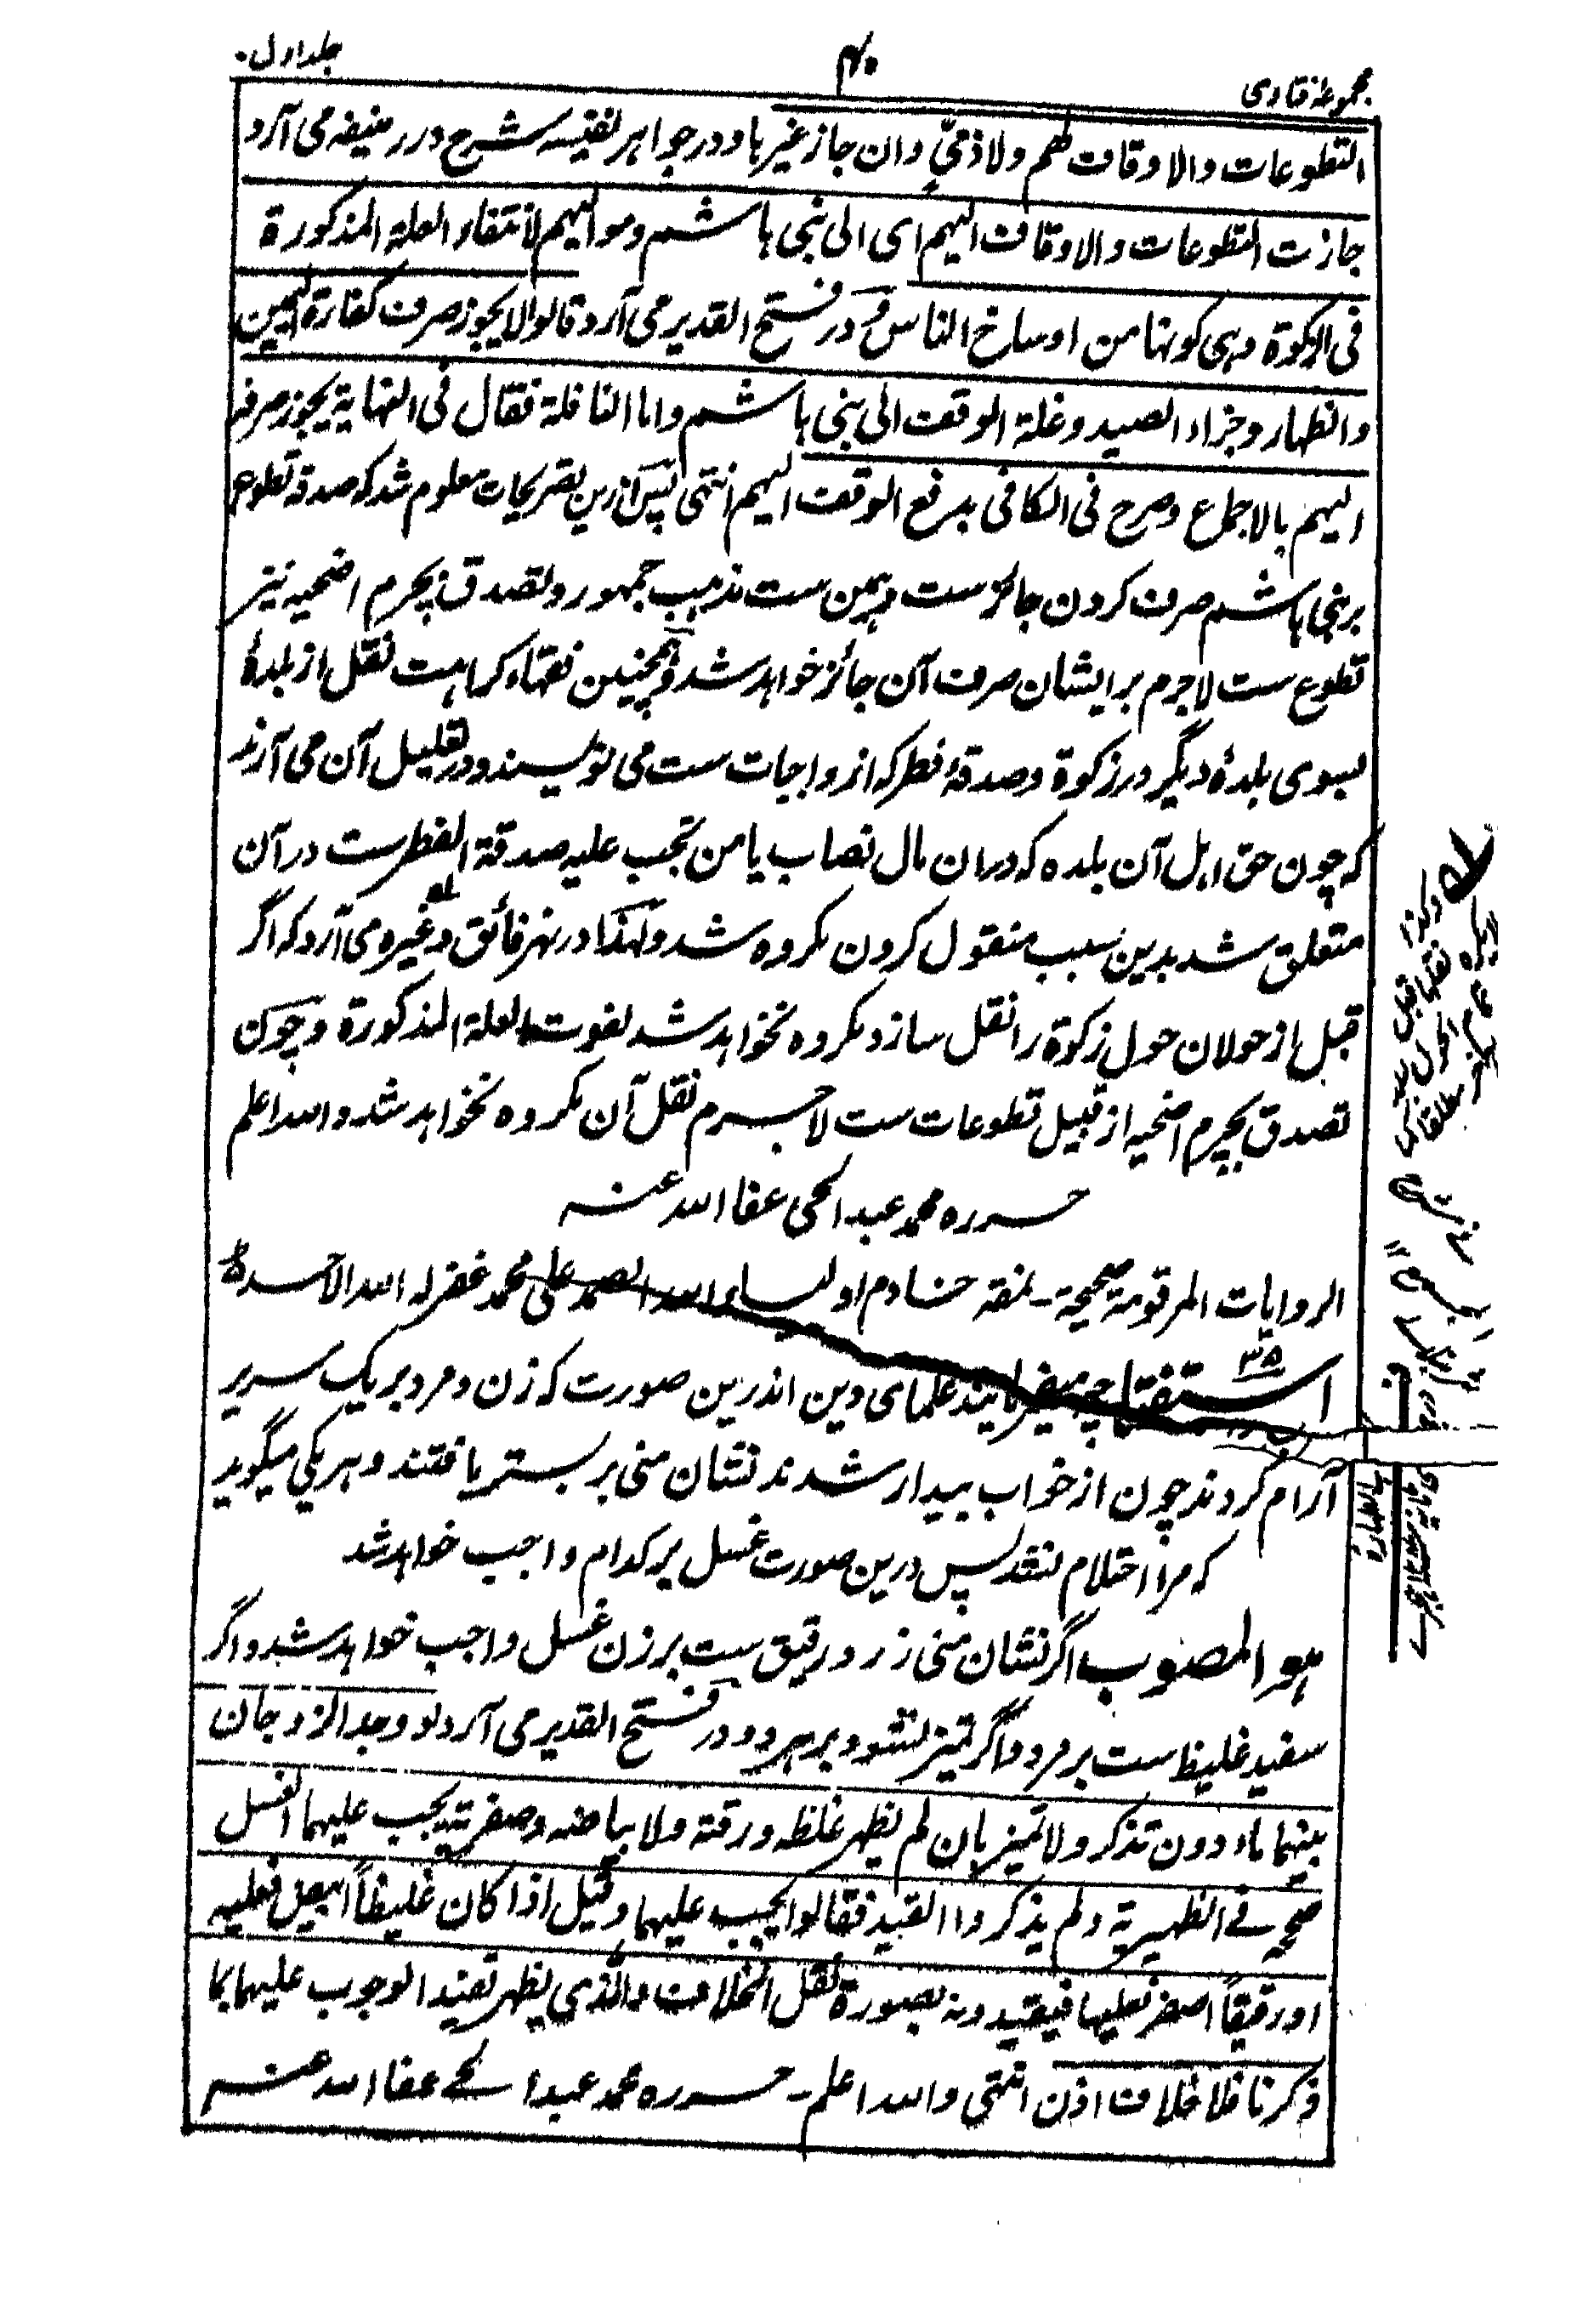 مجموعۂ فتاوی
۴۰
جلد اول
التطوعات والاوقاف لهم ولا ذمیٍّ وان جاز غیرہا و در جواہر نفیسہ شرح درر منیفہ می آرد
جازت التطوعات والاوقاف الیهم ای الی بنی ہاشم و موالیهم لانتفاء العلة المذکورة
فی الزکوة وہی کونها من اوساخ الناس و در فتح القدیر می آرد قالوا لا یجوز صرف کفارة الیمین
والظهار وجزاء الصید وغلة الوقف الی بنی ہاشم واما النافلة فقال فی النهایة یجوز صرفہ
الیهم بالاجماع وصرح فی الکافی بدفع الوقف الیهم انتهی پس ازین تصریحات معلوم شد که صدقۂ تطوع
بر بنی ہاشم صرف کردن جائز ست وہمین ست مذہب جمهور و تصدق بچرم اضحیه نیز
تطوع ست لا جرم بر ایشان صرف آن جائز خواہد شد و ہمچنین فقهاء کراہت نقل از بلدۂ
بسوی بلدۂ دیگر در زکوة و صدقۂ فطر که از واجبات ست می نویسند و در تعلیل آن می آرند
که چون حق اہل آن بلده که دران مال نصاب یا من تجب علیه صدقة الفطر ست در آن
متعلق شد بدین سبب منقول کردن مکروه شد و لهذا در نهر فائق و غیره می آرد که اگر
قبل از حولان حول زکوة را نقل سازد مکروه نخواہد شد لفوت العلة المذکورة و چون
تصدق بچرم اضحیه از قبیل تطوعات ست لا جرم نقل آن مکروه نخواہد شد والله اعلم
حرره محمد عبد الحی عفا الله عنه
الروایات المرقومة صحیحة ۔ نمقه خادم اولیاء الله الصمد علی محمد غفر له الله الاحد
استفتا ۳۵ چه میفرمایند علمای دین اندرین صورت که زن و مرد بر یک سریر
آرام کردند چون از خواب بیدار شدند نشان منی بر بستر یافتند و ہر یکی میگوید
که مرا احتلام نشد پس درین صورت غسل بر کدام واجب خواہد شد
ہو المصوب اگر نشان منی زرد و رقیق ست بر زن غسل واجب خواہد شد و اگر
سفید غلیظ ست بر مرد و اگر تمیز نشود بر ہر دو در فتح القدیر می آرد لو وجد الزوجان
بینهما ماء دون تذکر ولا تمیز بان لم یظهر غلظه ورقته ولا بیاضه وصفرته یجب علیهما الغسل
صححه فی الظهیریة ولم یذکروا القید فقالوا یجب علیهما وقیل اذا کان غلیظاً ابیض فعلیه
او رقیقاً اصفر فعلیها فیقیدونه بصورة نقل الخلاف والذی یظهر تقیید الوجوب علیهما بما
ذکرنا فلا خلاف اذن انتهی والله اعلم ۔ حرره محمد عبد الحی عفا الله عنه